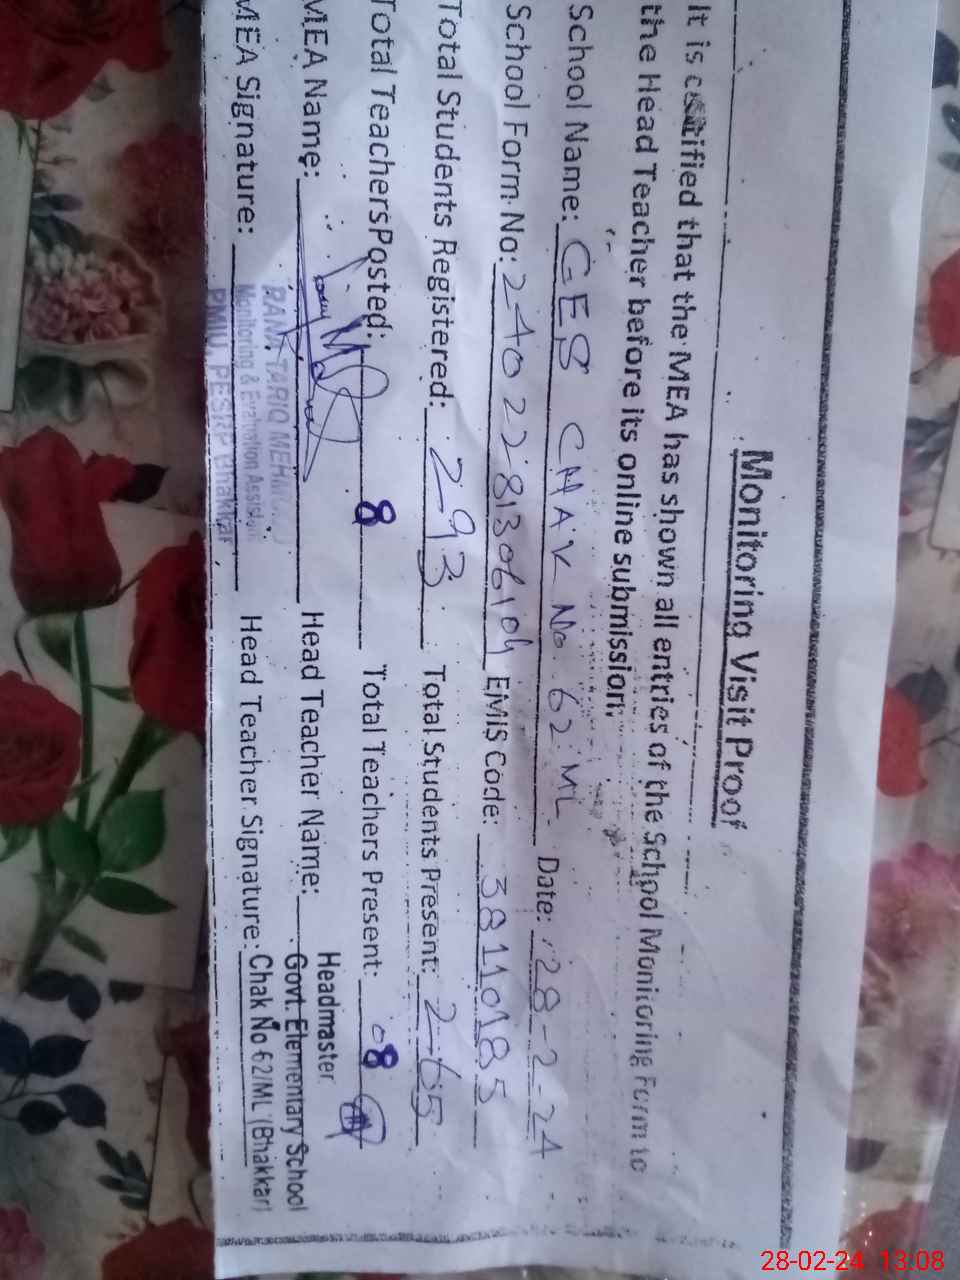 Monitoring Visit Proof
It is certified that the MEA has shown all entries of the School Monitoring Form to
the Head Teacher before its online submission.
School Name: GES CHAK No. 62 ML Date: 28-2-24
School Form No: 2402281306104 EMIS Code: 38110185
Total Students Registered: 293 Total Students Present: 265
Total Teachers Posted: 8 Total Teachers Present: 08
MEA Name: Head Teacher Name: Headmaster
Govt. Elementary School
MEA Signature: Head Teacher Signature: Chak No 62/ML (Bhakkar)
RANA TARIQ MEHMOOD
Monitoring & Evaluation Assistant
PMIU, PESRP Bhakkar
28-02-24 13:08